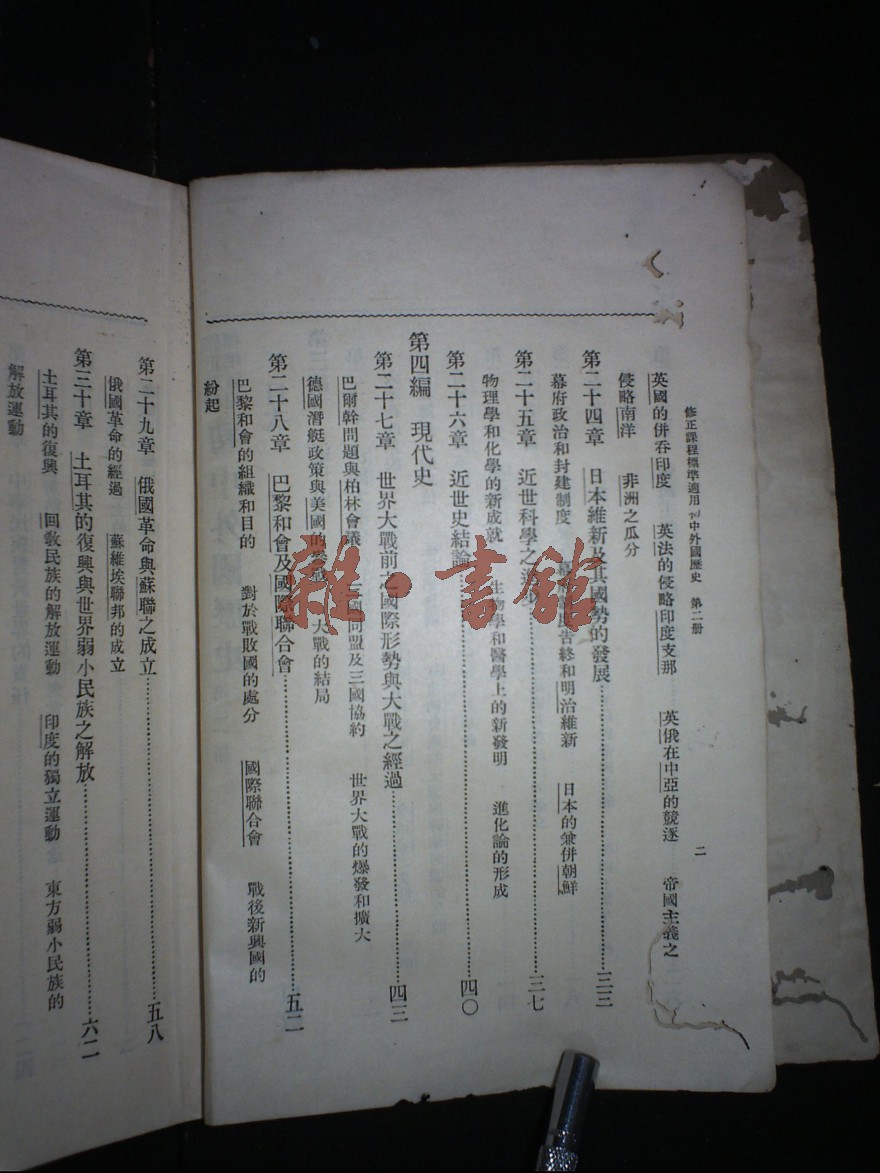 修正課程標準適用 中外國歷史 第二册 二
英國的併吞印度 英法的侵略印度支那 英俄在中亞的競逐 帝國主義之
侵略南洋 非洲之瓜分
第二十四章 日本維新及其國勢的發展……三三
幕府政治和封建制度 告終和明治維新 日本的兼併朝鮮
第二十五章 近世科學之……三七
物理學和化學的新成就 生物學和醫學上的新發明 進化論的形成
第二十六章 近世史結論……四〇
第四編 現代史
第二十七章 世界大戰前之國際形勢與大戰之經過……四三
巴爾幹問題與柏林會議 三國同盟及三國協約 世界大戰的爆發和擴大
德國潛艇政策與美國的參戰 大戰的結局
第二十八章 巴黎和會及國際聯合會……五二
巴黎和會的組織和目的 對於戰敗國的處分 國際聯合會 戰後新興國的
紛起
第二十九章 俄國革命與蘇聯之成立……五八
俄國革命的經過 蘇維埃聯邦的成立
第三十章 土耳其的復興與世界弱小民族之解放……六二
土耳其的復興 回教民族的解放運動 印度的獨立運動 東方弱小民族的
解放運動
雜·書館